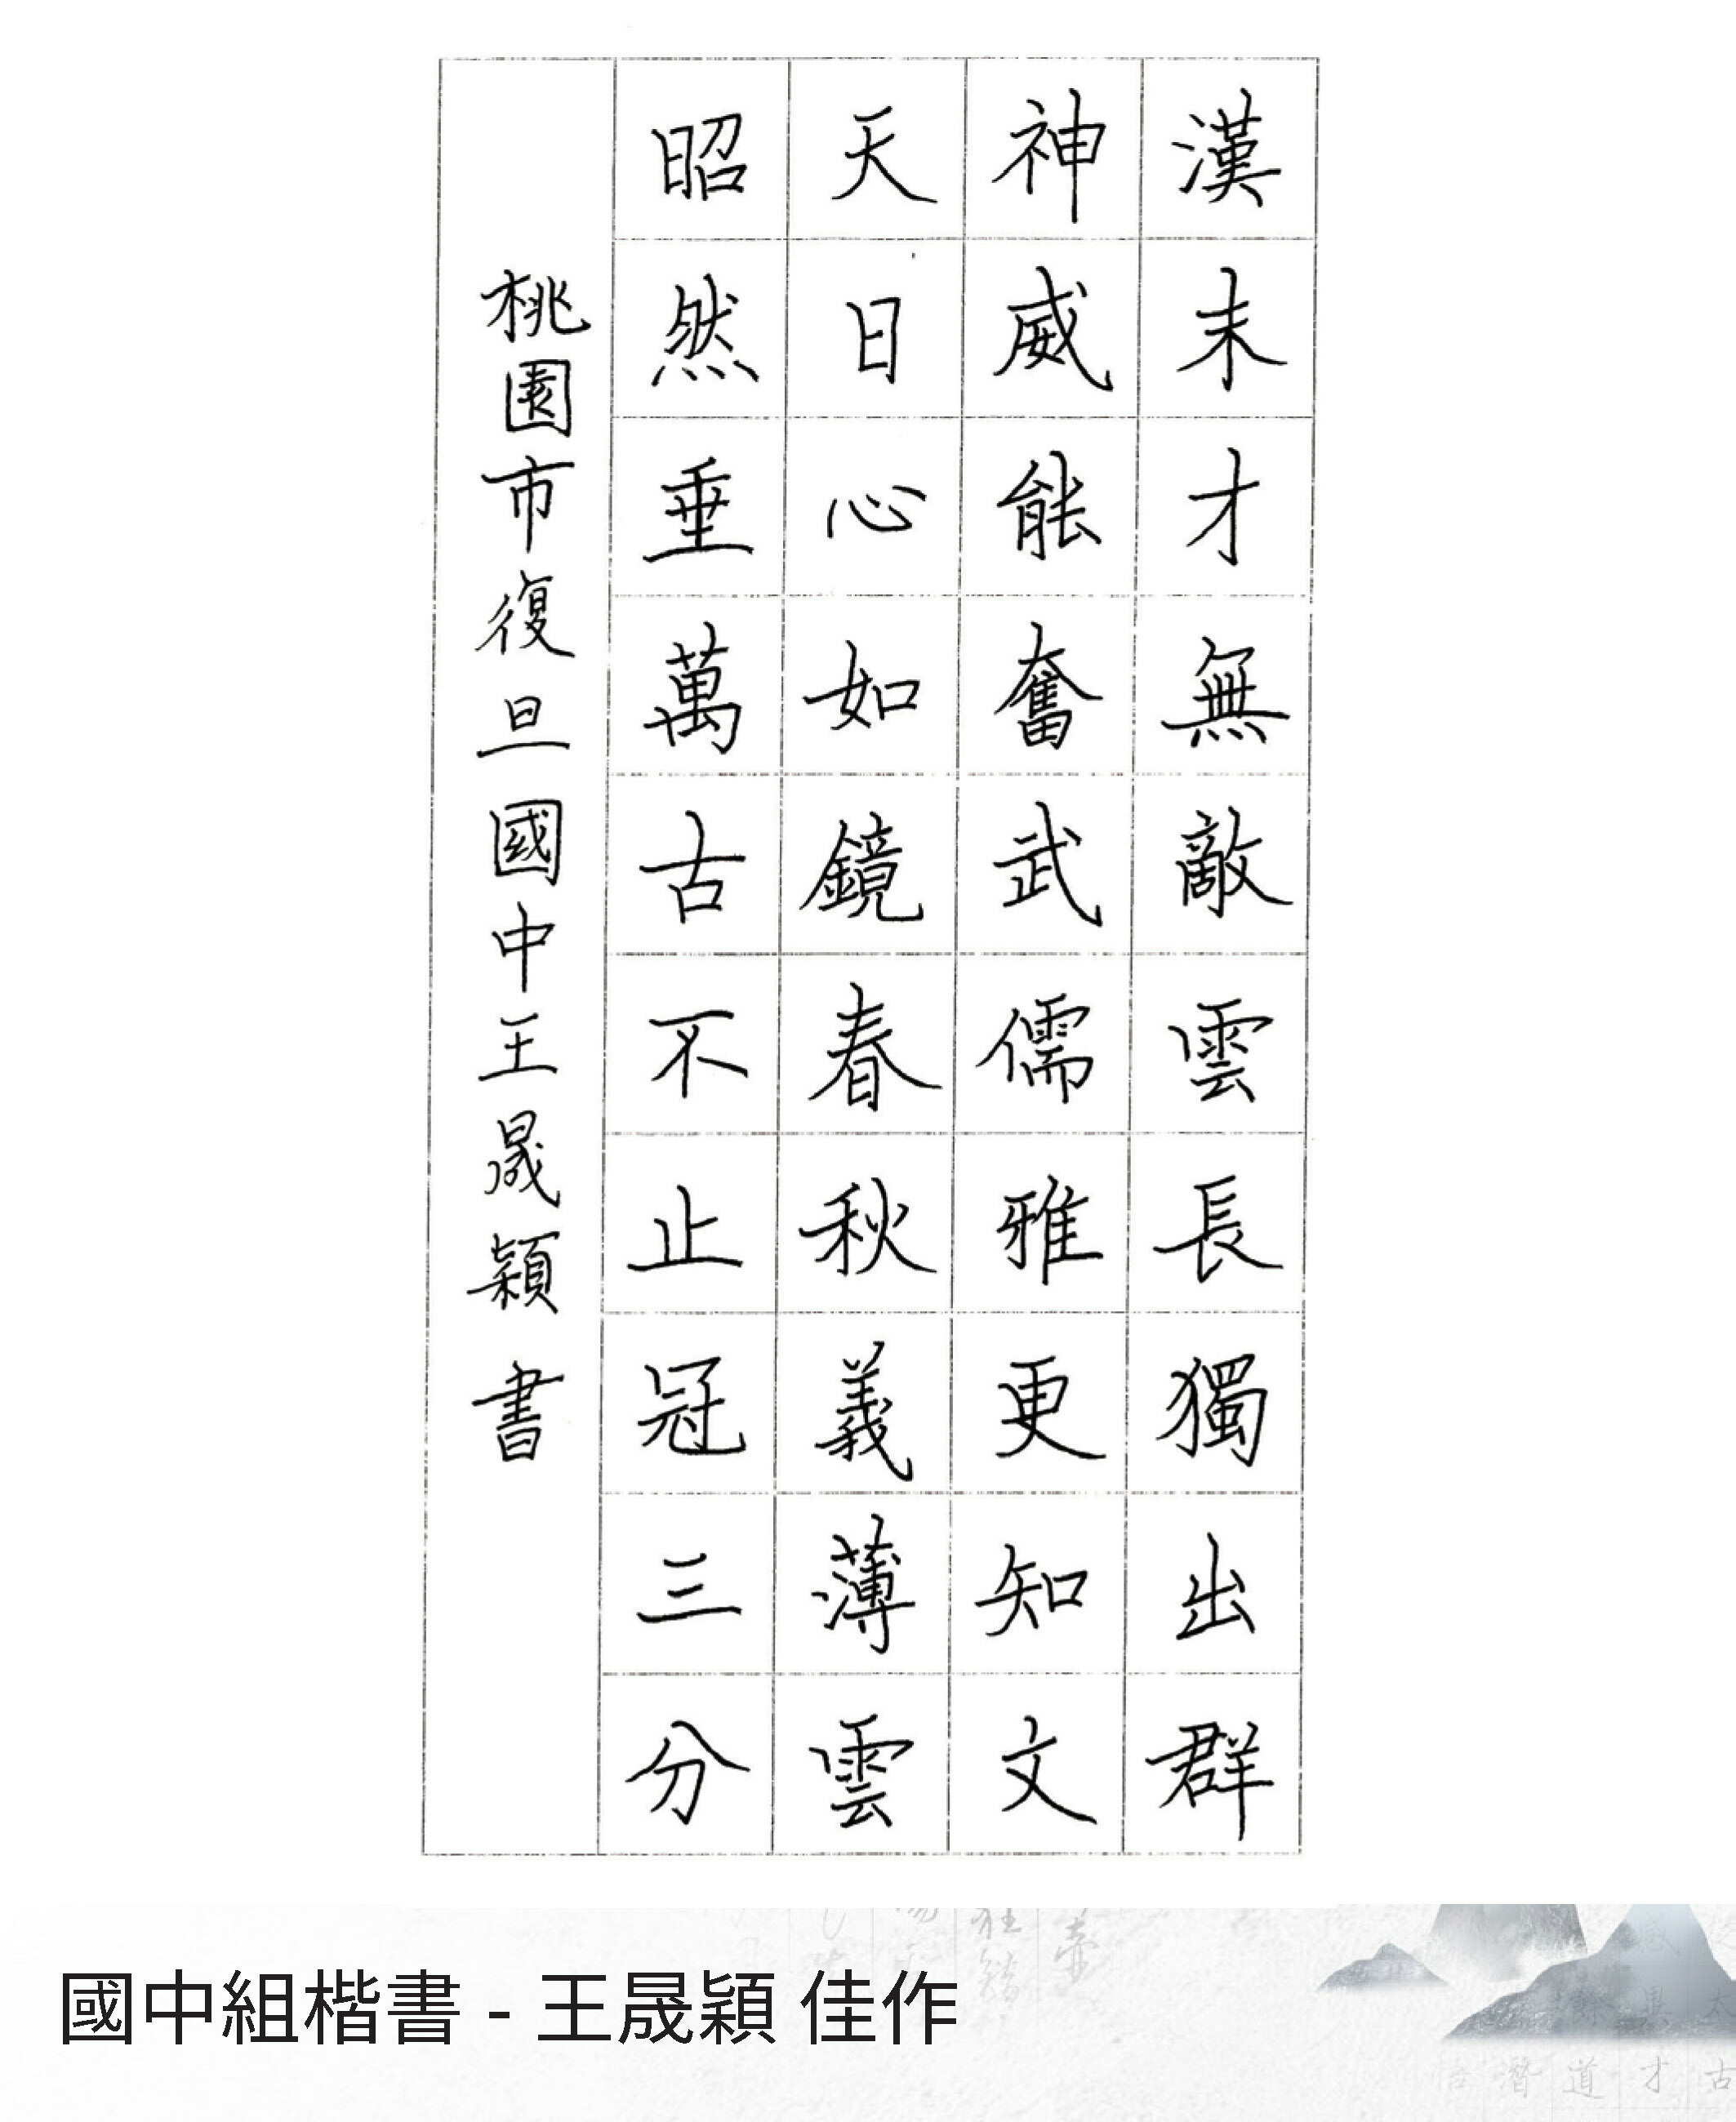 漢末才無敵雲長獨出群
神威能奮武儒雅更知文
天日心如鏡春秋義薄雲
昭然垂萬古不止冠三分
桃園市復旦國中王晟穎書
國中組楷書 - 王晟穎 佳作